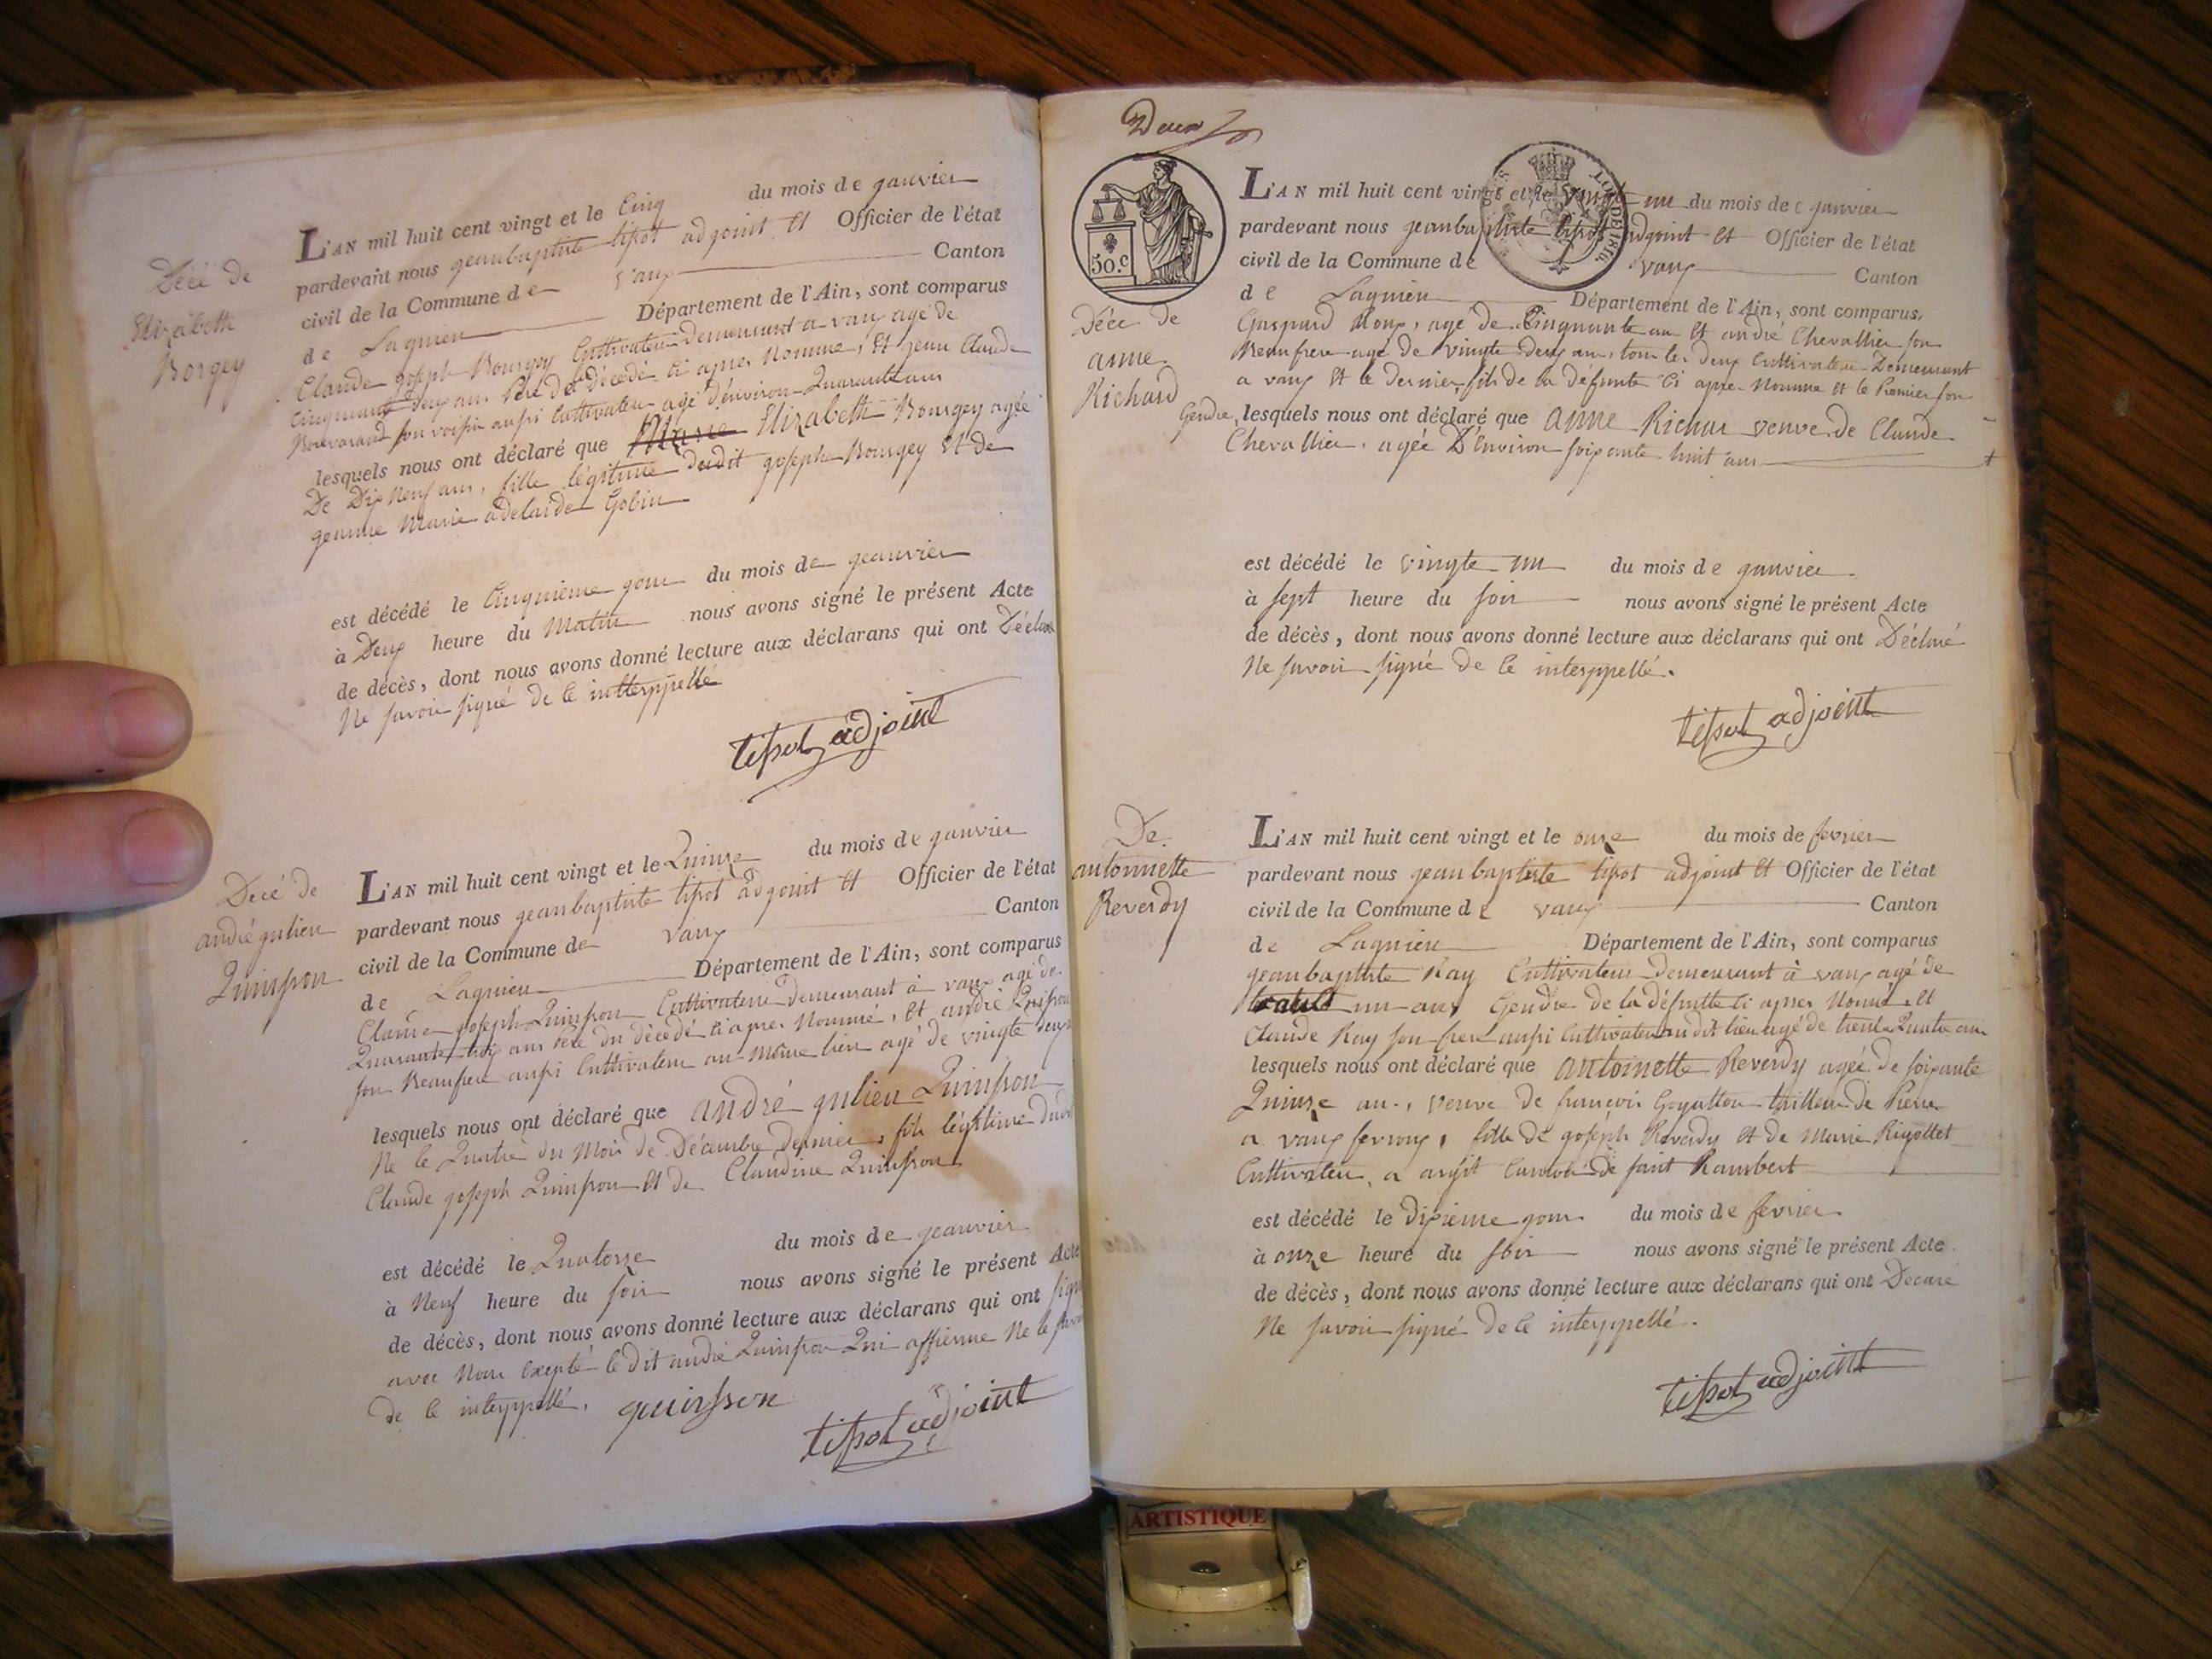 Décé de
Elizabeth
Borgey
L'AN mil huit cent vingt et le Cinq du mois de ganvier
pardevant nous geanbaptiste tipot adgoint Et Officier de l'état
civil de la Commune de vaux Canton
de Lagnieu Département de l'Ain, sont comparus
Claude goseph Bourgey Cultivateur demeurant a vaux agé de
Cinquante deux ans Père de la décédé ci apres Nommé, Et jean Claude
son voisin aussi Cultivateur agé d'environ Quarante ans
lesquels nous ont déclaré que Marie Elizabeth Bourgey agée
De Dix Neuf ans, fille légitime dudit goseph Bourgey Et de
geanne Marie adelaide Gobin
est décédé le Cinquieme gour du mois de geanvier
à Deux heure du Matin nous avons signé le présent Acte
de décès, dont nous avons donné lecture aux déclarans qui ont Déclaré
Ne savoir signé de ce interppellé
tipot adjoint
Décé de
andré gulien
Quinson
L'AN mil huit cent vingt et le Quinze du mois de ganvier
pardevant nous geanbaptiste tipot adgoint Et Officier de l'état
civil de la Commune de vaux Canton
de Lagnieu Département de l'Ain, sont comparus
Claude goseph Quinson Cultivateur demeurant à vaux agé de
Quarante six ans Père du décédé ci apres Nommé, Et andré Quinson
son Beaufrere aussi Cultivateur au même lieu agé de vingte deux
lesquels nous ont déclaré que andré gulien Quinson
Né le Quatre du Mois de Décembre dernier, fils légitime dudit
Claude goseph Quinson Et de Claudine Quinson
est décédé le Quatorze du mois de geanvier
à Neuf heure du soir nous avons signé le présent Acte
de décès, dont nous avons donné lecture aux déclarans qui ont signé
avec Nous Excepté le dit andré Quinson Qui affirme Ne le savoir
de ce interppellé. quinsson
tipot adjoint
Deux
50.c
Déce de
anne
Richard
L'AN mil huit cent vingt et le vingt un du mois de ganvier
pardevant nous geanbaptiste tipot adgoint Et Officier de l'état
civil de la Commune de vaux Canton
de Lagnieu Département de l'Ain, sont comparus,
Gaspard Roux, agé de Cinquante an Et andré Chevallier son
Beaufrere agé de vingte deux ans, tous les deux Cultivateur Demeurant
a vaux Et le dernier fils de la défunte Ci apres Nommé et le Premier son
Gendre, lesquels nous ont déclaré que anne Richar veuve de Claude
Chevallier, agée D'Environ soixante huit ans
est décédé le vingte un du mois de ganvier
à sept heure du soir nous avons signé le présent Acte
de décès, dont nous avons donné lecture aux déclarans qui ont Déclaré
Ne savoir signé de ce interppellé.
tipot adjoint
De
antoinette
Reverdy
L'AN mil huit cent vingt et le onze du mois de fevrier
pardevant nous geanbaptiste tipot adjoint Et Officier de l'état
civil de la Commune de vaux Canton
de Lagnieu Département de l'Ain, sont comparus
geanbaptiste Ray Cultivateur demeurant à vaux agé de
un ans Gendre de la défunte ci apres Nommé, Et
Claude Ray son frere aussi Cultivateur audit lieu agé de trente Quatre ans
lesquels nous ont déclaré que antoinette Reverdy agée de soixante
Quinze ans, veuve de francois Goyatton tailleur de Pierre
a vaux fevroux, fille de goseph Reverdy Et de Marie Rigottet
Cultivateur, a argit Canton de saint Rambert
est décédé le dixieme gour du mois de fevrier
à onze heure du soir nous avons signé le présent Acte
de décès, dont nous avons donné lecture aux déclarans qui ont Decaré
Ne savoir signé de ce interppellé.
tipot adjoint
ARTISTIQUE